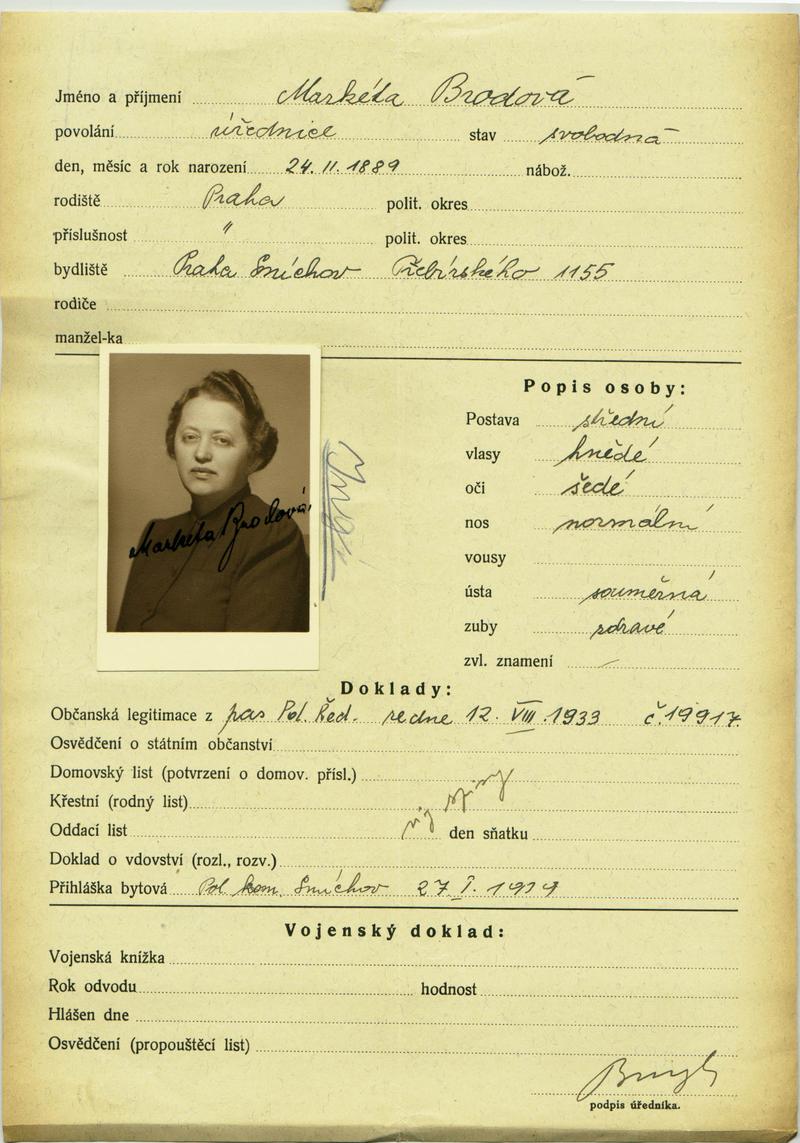 Jméno a příjmení Markéta Brodová
povolání úřednice stav svobodná
den, měsíc a rok narození 24. II. 1889 nábož.
rodiště Praha polit. okres
příslušnost " polit. okres
bydliště Praha Smíchov 1155
rodiče
manžel-ka
Markéta Brodová
Popis osoby:
Postava střední
vlasy hnědé
oči šedé
nos normální
vousy
ústa souměrná
zuby zdravé
zvl. znamení —
Doklady:
Občanská legitimace z pas Pol. Řed. ze dne 12. VIII. 1933 č. 19917
Osvědčení o státním občanství
Domovský list (potvrzení o domov. přísl.)
Křestní (rodný list)
Oddací list den sňatku
Doklad o vdovství (rozl., rozv.)
Přihláška bytová Pol kom. Smíchov 27. I. 1939
Vojenský doklad:
Vojenská knížka
Rok odvodu hodnost
Hlášen dne
Osvědčení (propouštěcí list)
podpis úředníka.